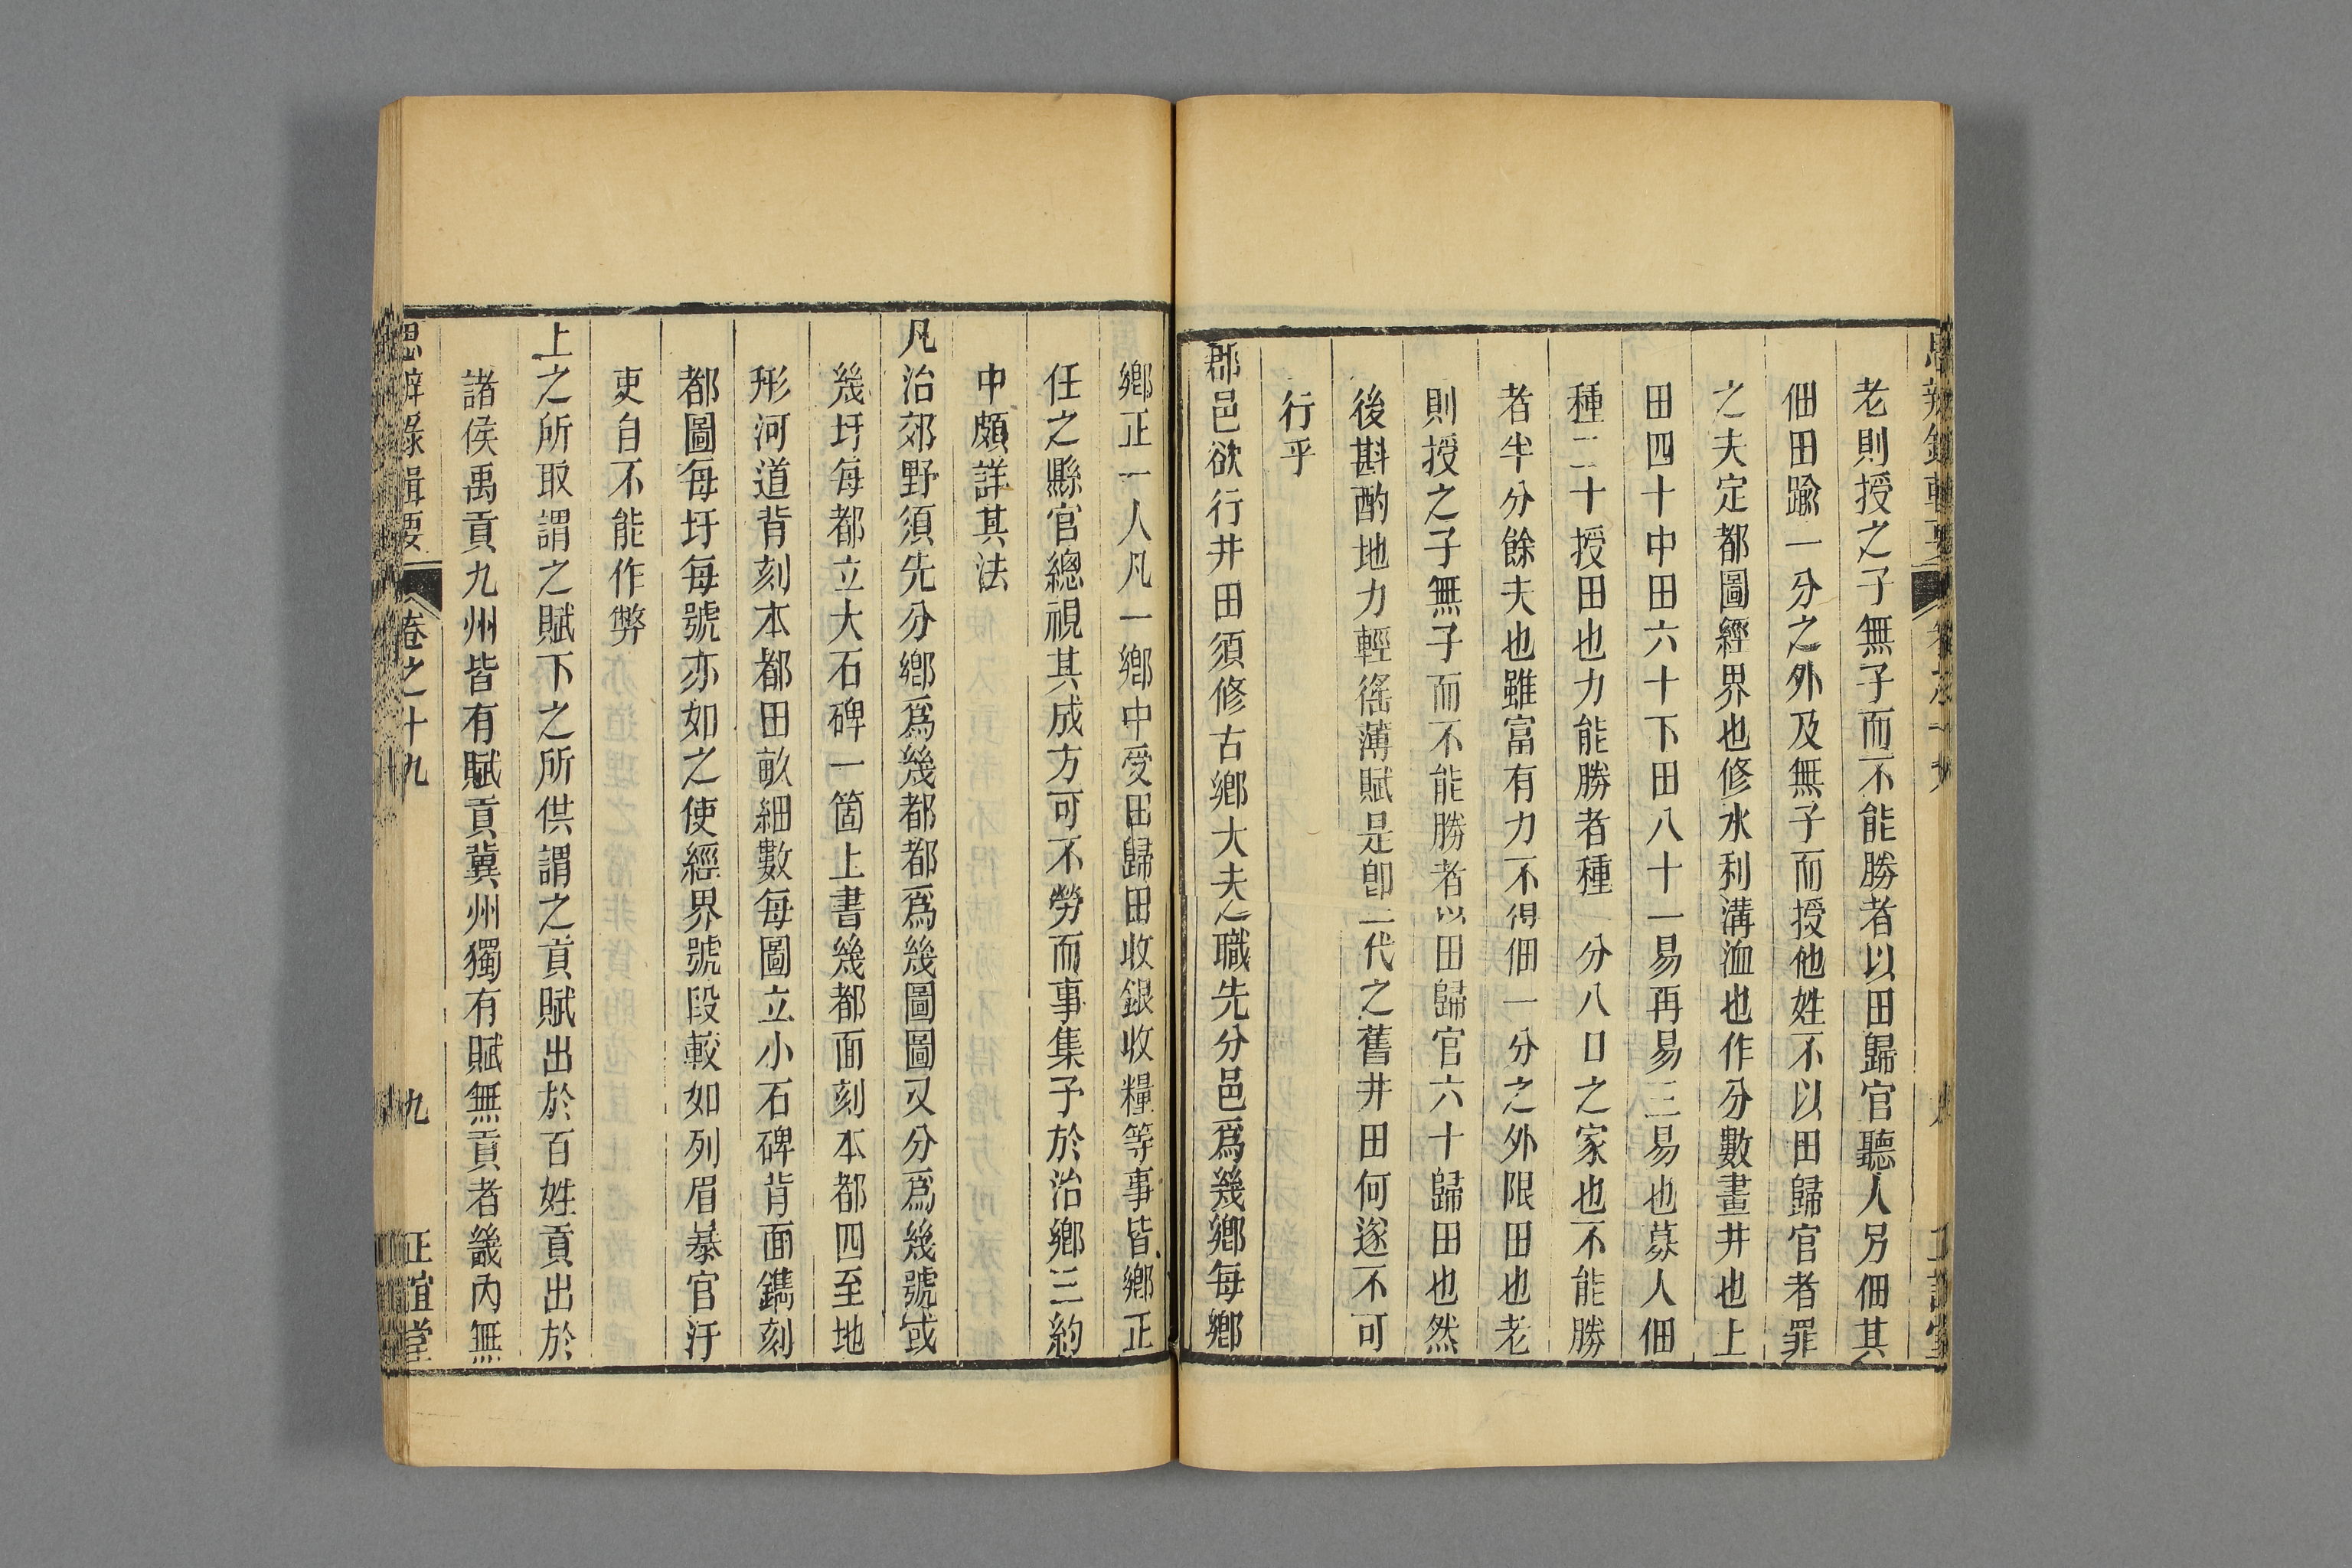 老則授之子無子而不能勝者以田歸官聽人另佃其
佃田踰一分之外及無子而授他姓不以田歸官者罪
之夫定都圖經界也修水利溝洫也作分數畫井也上
田四十中田六十下田八十一易再易三易也募人佃
種二十授田也力能勝者種一分八口之家也不能勝
者半分餘夫也雖富有力不得佃一分之外限田也老
則授之子無子而不能勝者以田歸官六十歸田也然
後斟酌地力輕徭薄賦是卽三代之舊井田何遂不可
行乎
郡邑欲行井田須修古鄉大夫之職先分邑爲幾鄉每鄉
鄉正一人凡一鄉中受田歸田收銀收糧等事皆鄉正
任之縣官總視其成方可不勞而事集予於治鄉三約
中頗詳其法
凡治郊野須先分鄉爲幾都都爲幾圖圖又分爲幾號或
幾圩每都立大石碑一箇上書幾都面刻本都四至地
形河道背刻本都田畝細數每圖立小石碑背面鐫刻
都圖每圩每號亦如之使經界號段較如列眉暴官汙
吏自不能作弊
上之所取謂之賦下之所供謂之貢賦出於百姓貢出於
諸侯禹貢九州皆有賦貢冀州獨有賦無貢者畿內無
思辨錄輯要 卷之十九 九 正誼堂